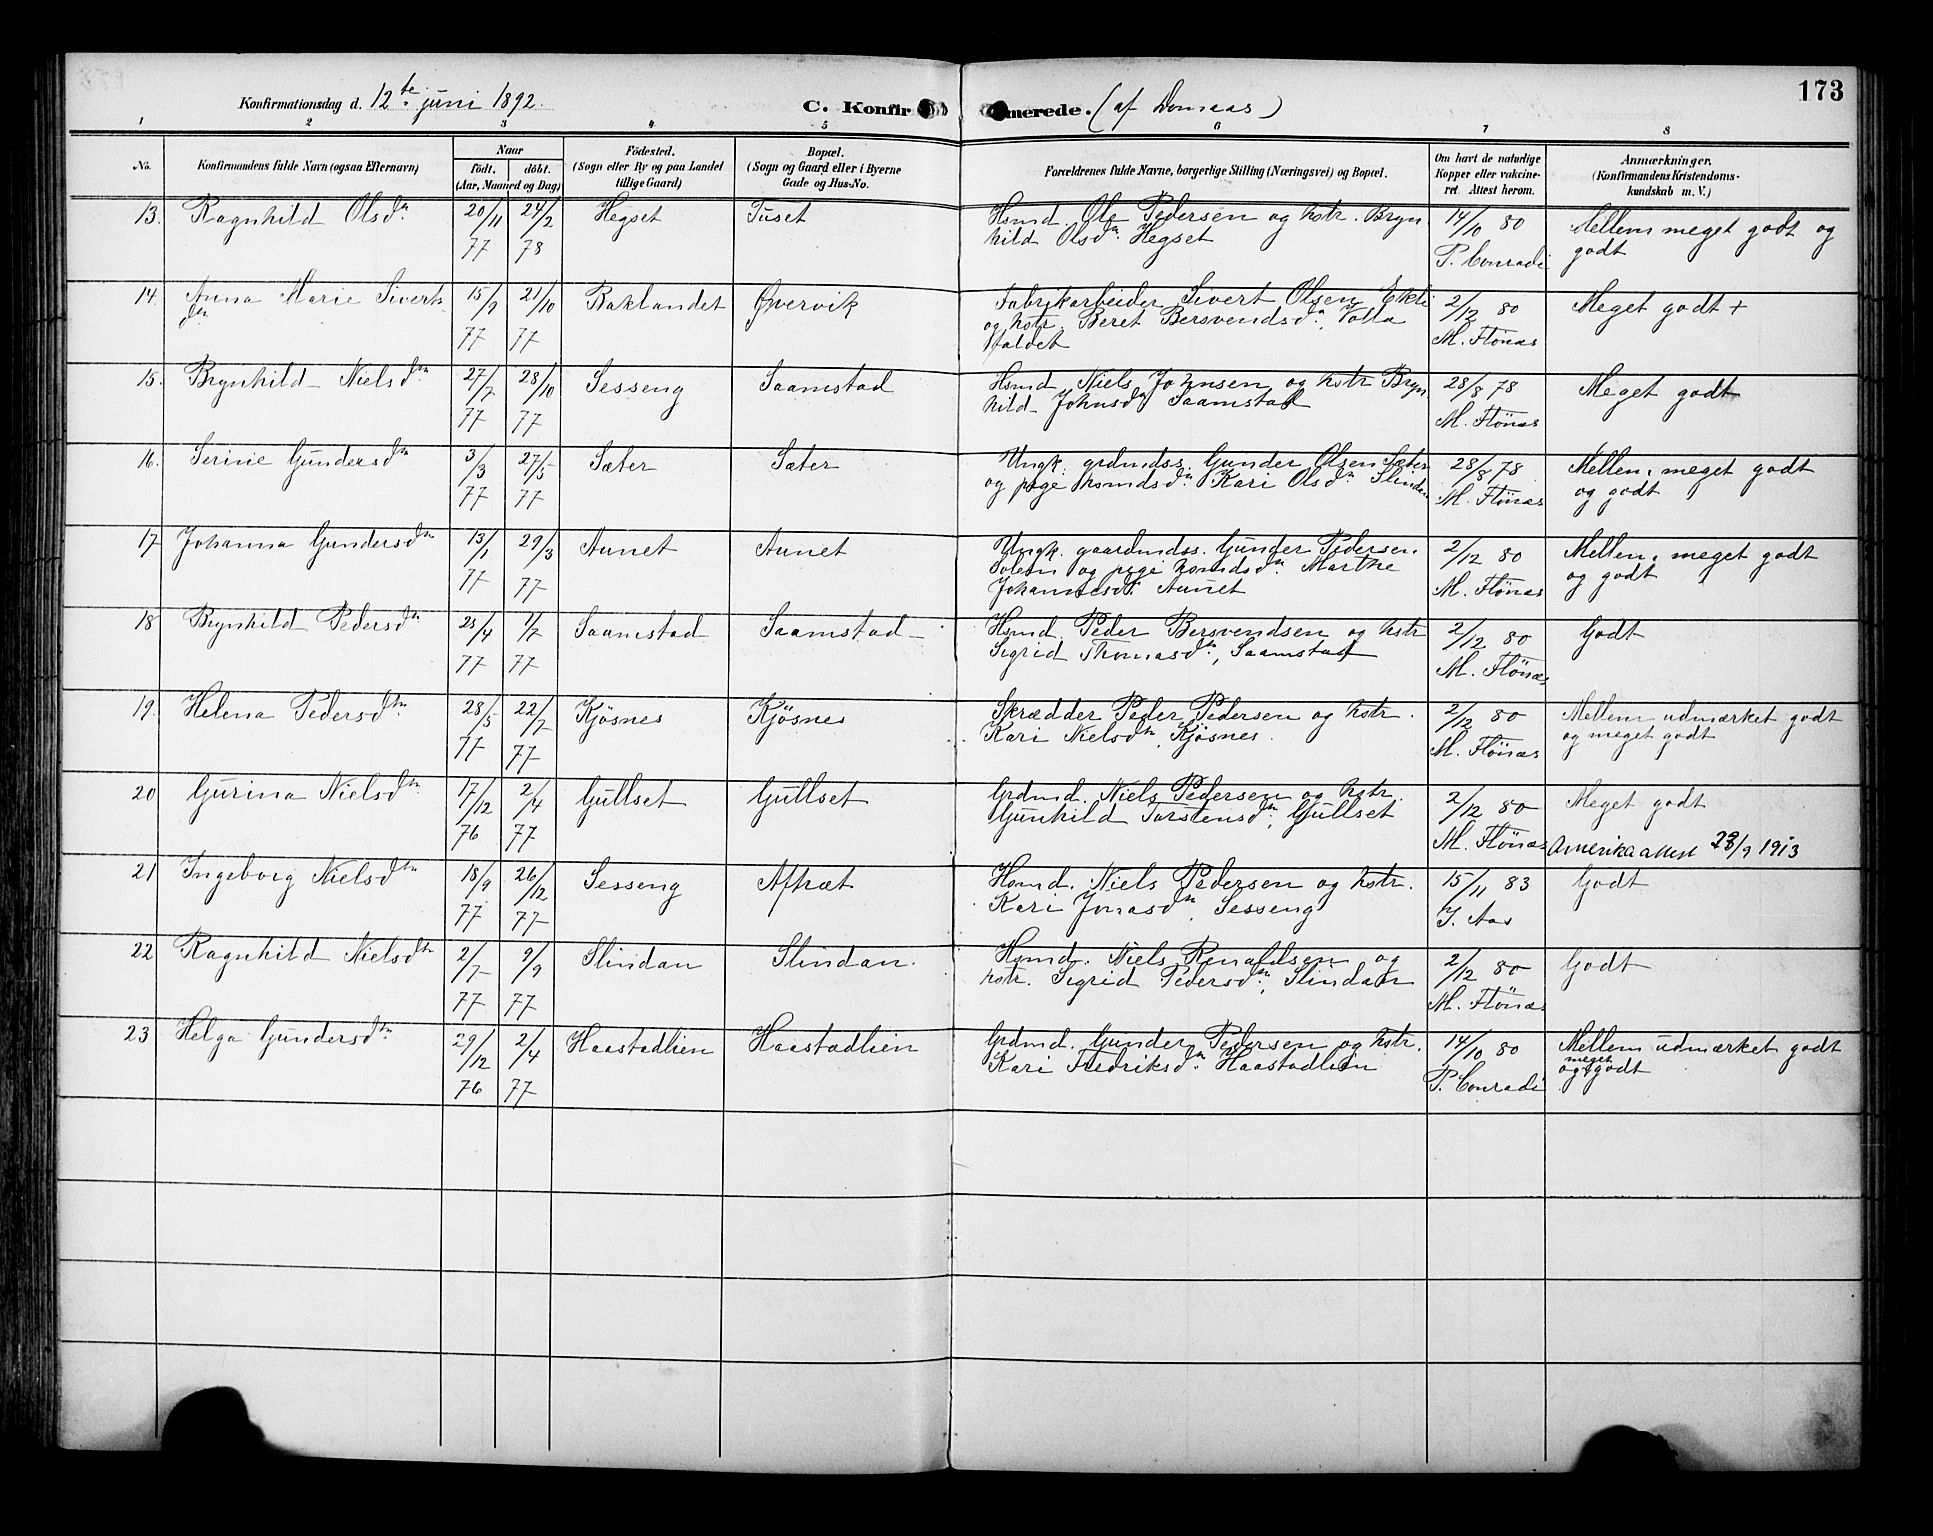 Konfirmationsdag d. 12te juni 1892.
C. Konfirmerede. (af Domaas)
173
1 2 3 4 5 6 7 8
No.
Konfirmandens fulde Navn (ogsaa Efternavn)
Naar
født. døbt.
(Aar, Maaned og Dag)
Fødested.
(Sogn eller By og paa Landet
tillige Gaard)
Bopæl.
(Sogn og Gaard eller i Byerne
Gade og Hus-No.
Forældrenes fulde Navne, borgerlige Stilling (Næringsvei) og Bopæl.
Om havt de naturlige
Kopper eller vaccine-
ret. Attest herom.
Anmærkninger.
(Konfirmandens Kristendoms-
kundskab m. V.)
13. Ragnhild Olsdn 20/11 77 24/2 78 Hegset Tuset
Hsmd. Ole Pedersen og hstr. Bryn
hild Olsdn. Hegset
14/10 80
P. Conradi
Mellem meget godt og
godt
14. Anna Marie Siverts
dn 15/9 77 21/10 77 Baklandet Øvervik
Fabrikarbeider Sivert Olsen Ekli
og hstr. Beret Bersvendsdn, Volla
faldet
2/12 80
M. Flönæs
Meget godt +
15. Brynhild Nielsdtn 27/7 77 28/10 77 Sesseng Saamstad
Hsmd Niels Johnsen og hstr Bryn
hild Johnsdn Saamstad
28/8 78
M. Flönæs
Meget godt
16. Serine Gundersdtn 3/3 77 27/5 77 Sæter Sæter
Ungk. grdmdss. Gunder Olsen Sæter
og pige hsmdsdn Kari Olsdn Slindan
28/8 78
M. Flönæs
Mellem meget godt
og godt
17 Johanna Gundersdtn 13/1 77 29/3 77 Aunet Aunet
Ungk. gaardmdss. Gunder Pedersen
Solem og pige hsmdsdn. Marthe
Johannesd. Aunet
2/12 80
M. Flönæs
Mellem meget godt
og godt
18 Brynhild Pedersdtn 23/4 77 1/7 77 Saamstad Saamstad
Hsmd. Peder Bersvendsen og hstr
Sigrid Thomasdn, Saamstad
2/12 80
M. Flönæs
Godt
19. Helena Pedersdtn. 28/5 77 22/7 77 Kjösnes Kjösnes
Skrædder Peder Pedersen og hstr.
Kari Nielsdn, Kjösnes.
2/12 80
M. Flönæs
Mellem udmærket godt
og meget godt
20 Gurina Nielsdtn 17/12 76 2/4 77 Gullset Gullset
Grdmd. Niels Pedersen og hstr.
Gunhild Torstensdn, Gullset
2/12 80
M. Flönæs
Meget godt
Amerikaattest 23/9 1913
21 Ingeborg Nielsdtn 18/9 77 26/12 77 Sesseng Aftræt
Hsmd. Niels Pedersen og hstr.
Kari Jonasdn, Sesseng
15/11 83
J. Aas
Godt
22 Ragnhild Nielsdtn 2/7 77 9/9 77 Slindan Slindan.
Hsmd. Niels Renaldsen og
hstr. Sigrid Pedersdn, Slindan
2/12 80
M. Flönæs
Godt
23 Helga Gundersdtn 29/12 76 2/4 77 Haastadlien Haastadlien
Grdmd. Gunder Pedersen og hstr.
Kari Fredriksdn. Haastadlien
14/10 80
P. Conradi
Mellem udmærket godt
og meget godt